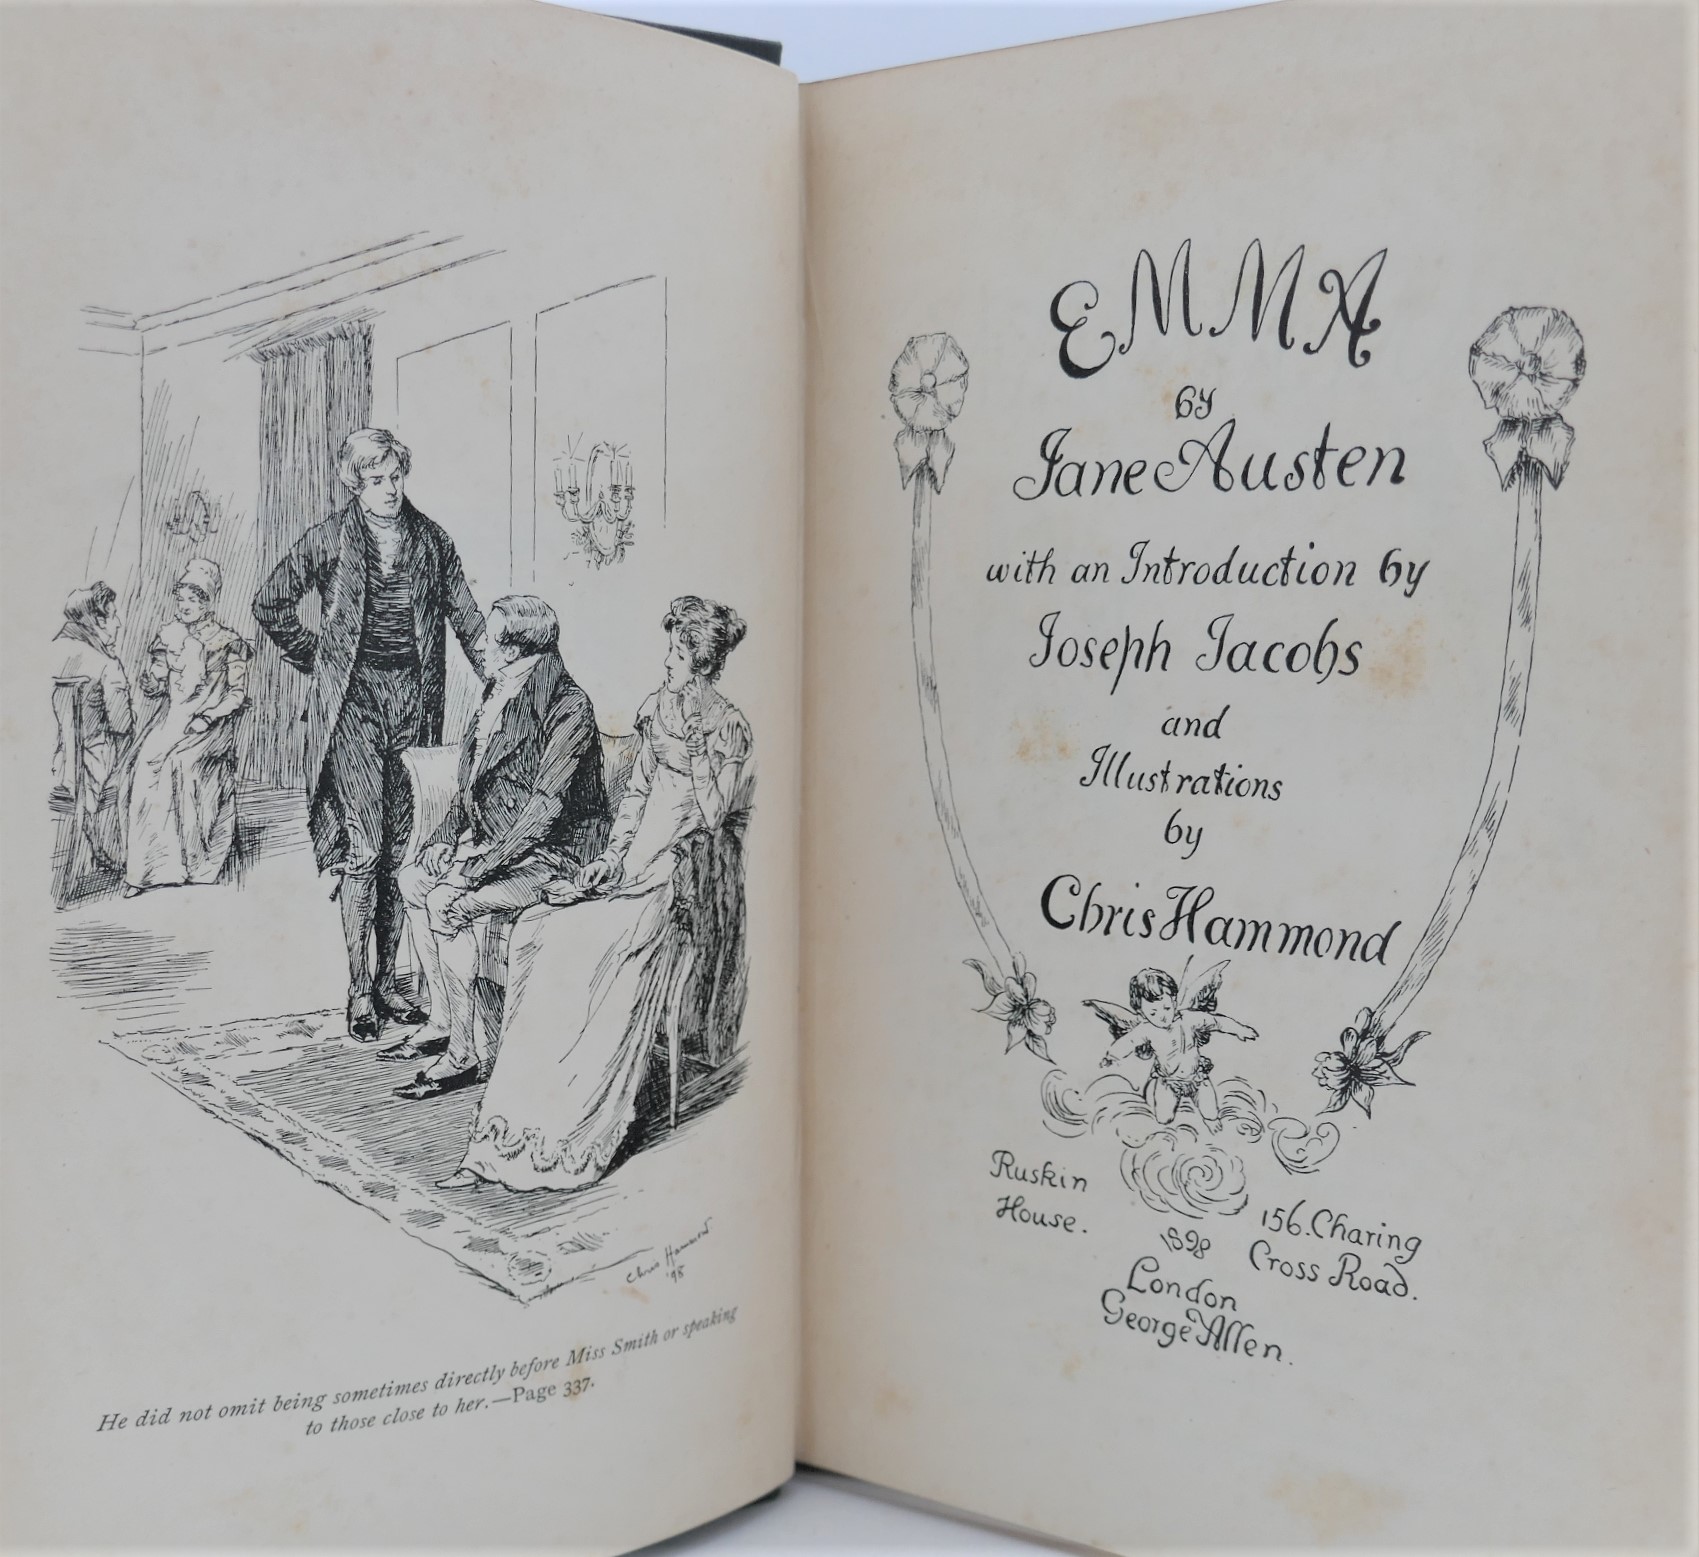 Chris Hammond
'98
He did not omit being sometimes directly before Miss Smith or speaking
to those close to her.—Page 337.
EMMA
by
Jane Austen
with an Introduction by
Joseph Jacobs
and
Illustrations
by
Chris Hammond
Ruskin
House.
1898
156. Charing
Cross Road.
London
George Allen.